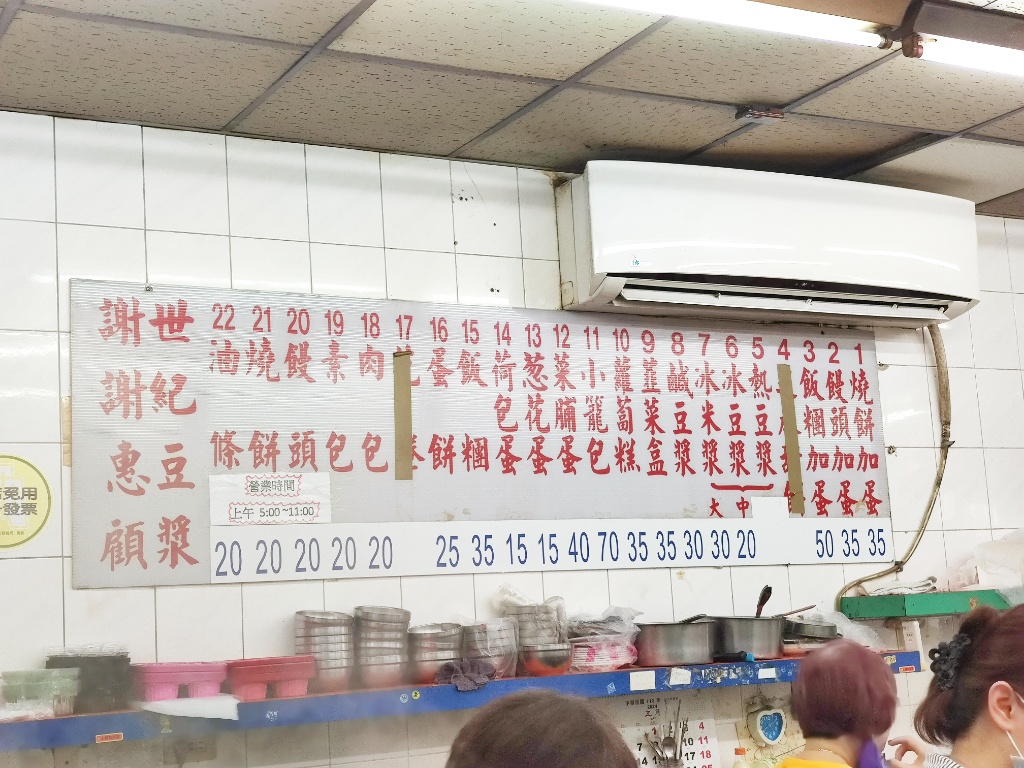 1 燒餅加蛋
2 饅頭加蛋
3 飯糰加蛋
4
5 熱豆漿
6 冰豆漿
7 冰米漿
中
大
8 鹹豆漿
9 韮菜盒
10 蘿蔔糕
11 小籠包
12 菜脯蛋
13 葱花蛋
14 荷包蛋
15 飯糰
16 蛋餅
17
18 肉包
19 素包
20 饅頭
21 燒餅
22 油條
世紀豆漿
謝謝惠顧
營業時間
上午 5:00~11:00
20 20 20 20 20 25 35 15 15 40 70 35 35 30 30 20 50 35 35
免用
發票